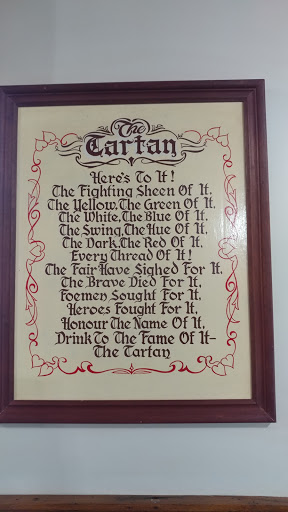 The
Tartan
Here's To It!
The Fighting Sheen Of It,
The Yellow, The Green Of It,
The White, The Blue Of It,
The Swing, The Hue Of It,
The Dark, The Red Of It,
Every Thread Of It!
The Fair Have Sighed For It,
The Brave Died For It,
Foemen Sought For It,
Heroes Fought For It,
Honour The Name Of It,
Drink To The Fame Of It-
The Tartan